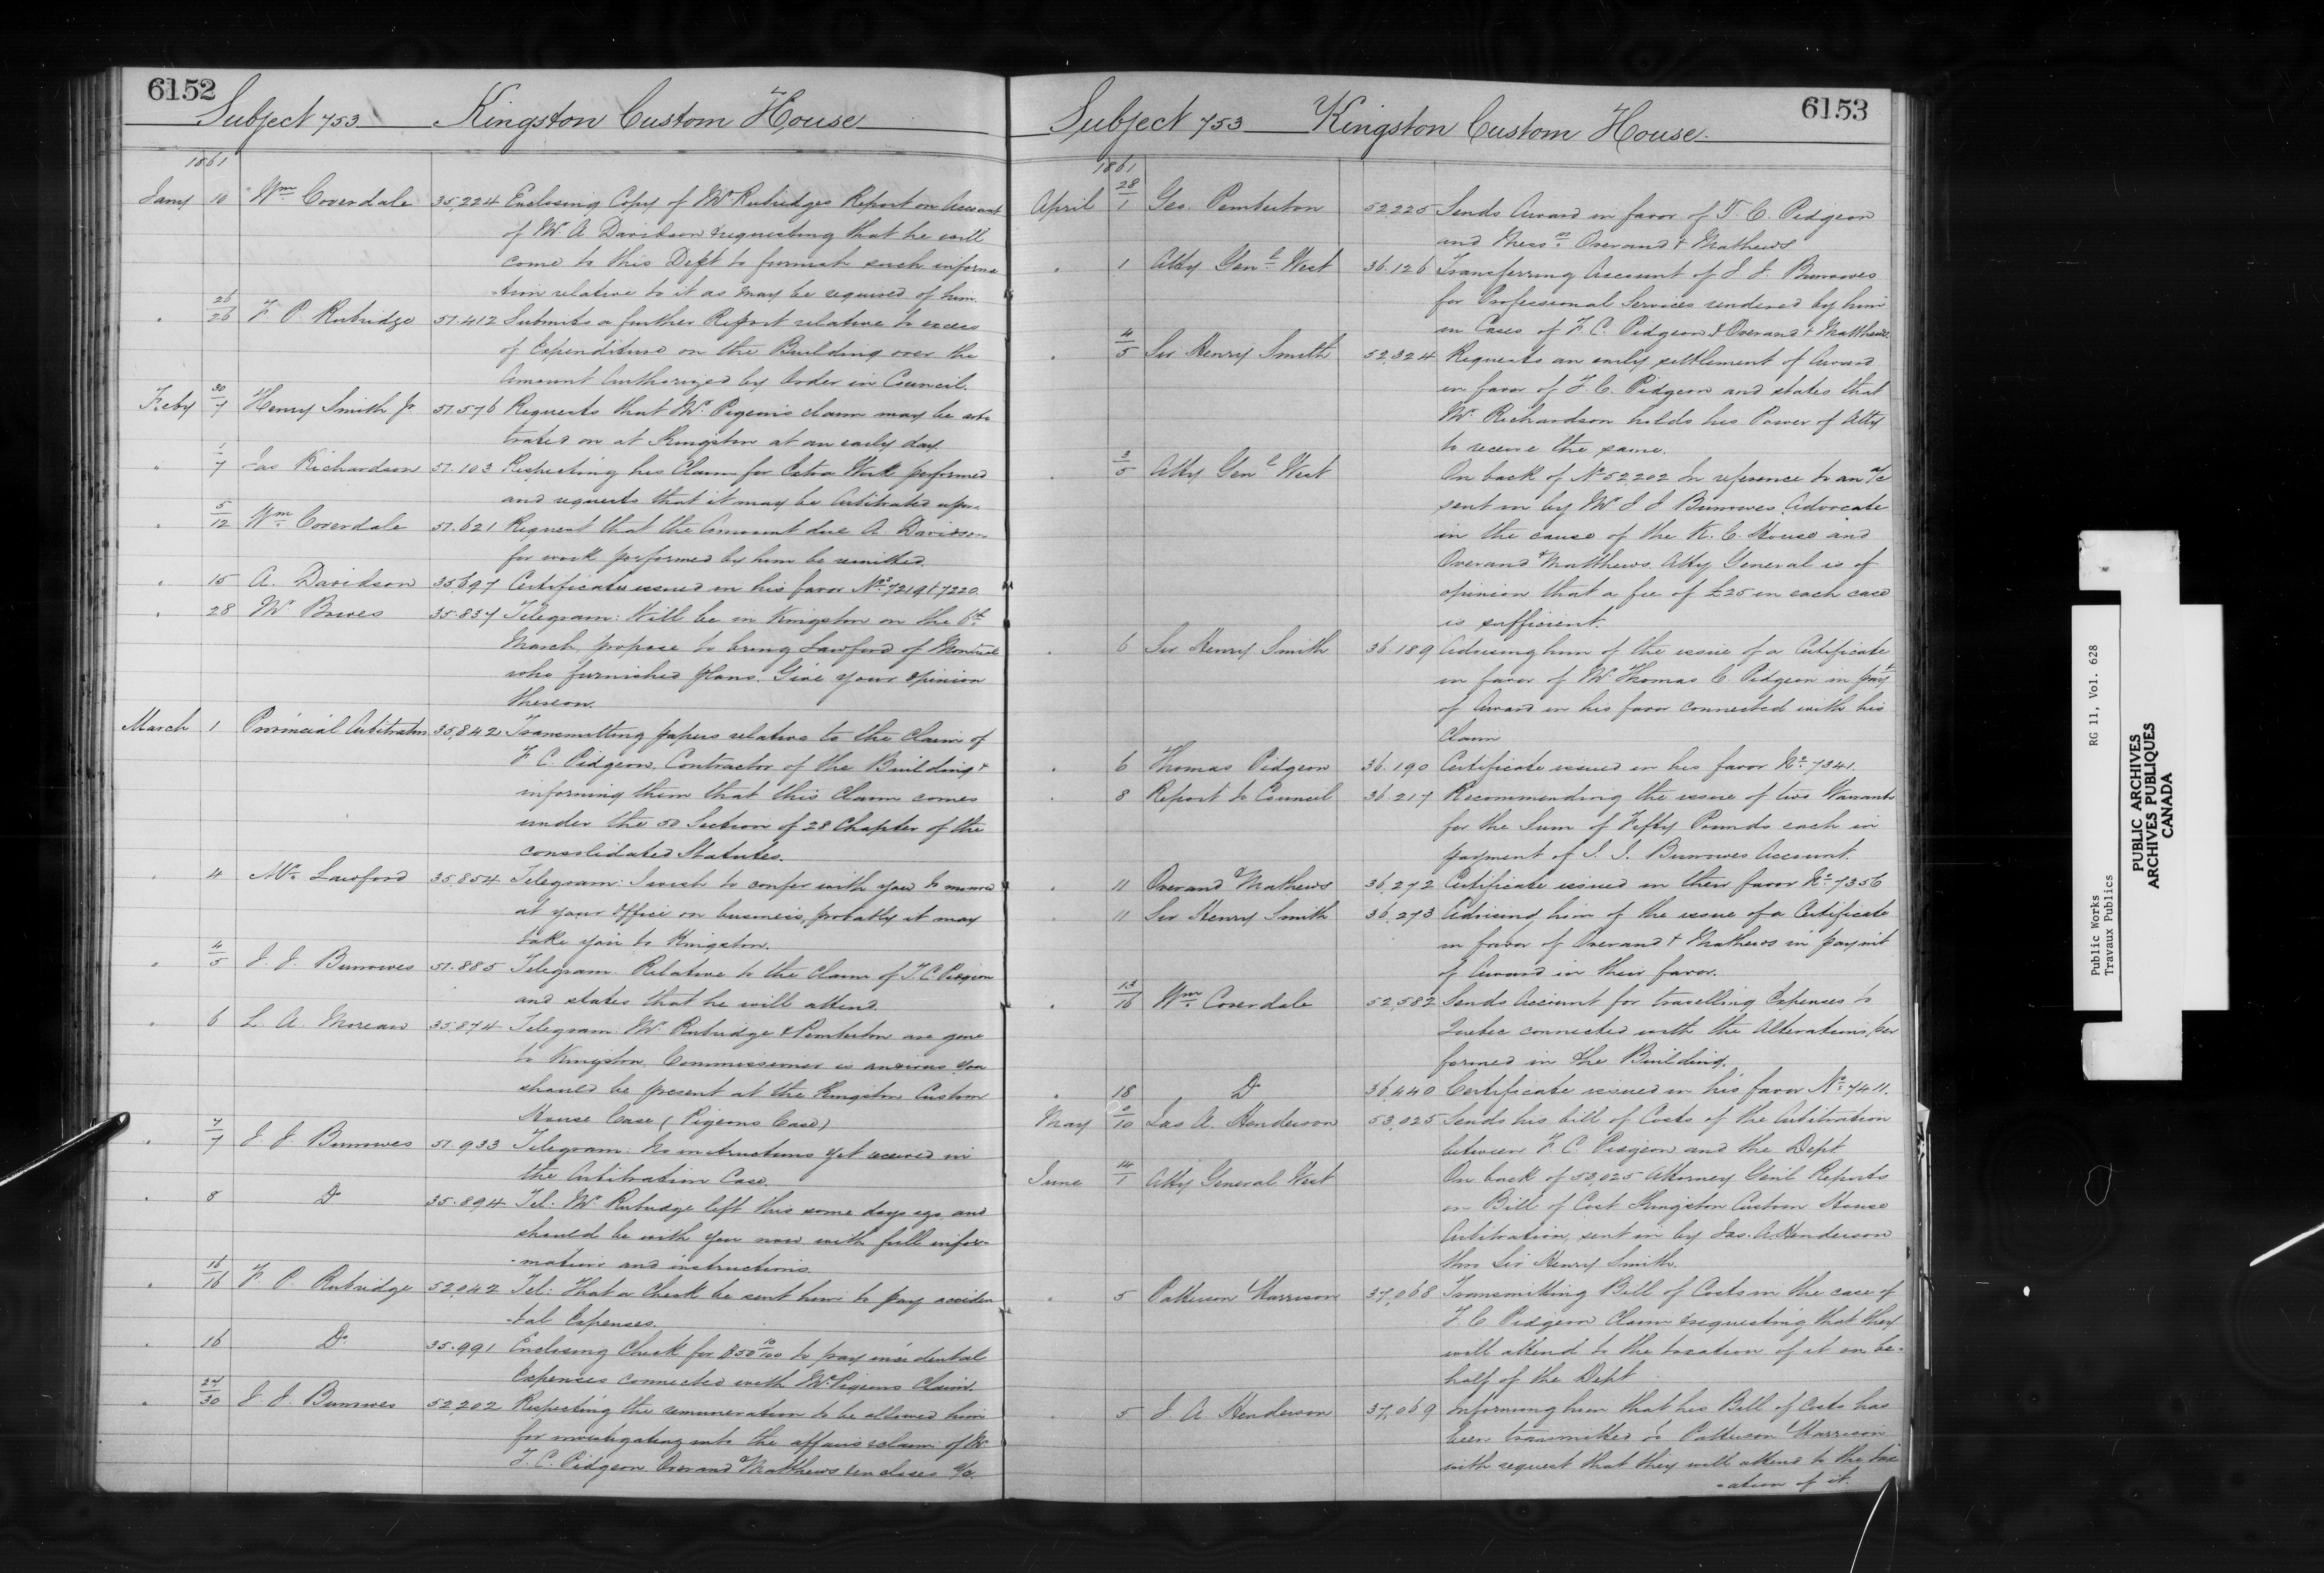 6152
Subject 753 Kingston Custom House
1861
Jany 10 Wm Coverdale 35,224 Enclosing Copy of Mr Rubidges Report on Account
of Mr A Davidson & requesting that he will
come to this Dept to furnish such informa
-tion relative to it as may be required of him.
" 26/26 F. P. Rubidge 51.412 Submits a further Report relative to excess
of Expenditure on the Building over the
Amount Authorized by Order in Council.
Feby 30/7 Henry Smith Jr 51.576 Requests that Mr Pigeon's claim may be arbi
trated on at Kingston at an early day.
" 1/7 Jas Richardson 51.103 Respecting his Claim for Extra Work performed
and requests that it may be Arbitrated upon.
" 5/12 Wm Coverdale 51.621 Request that the Amount due A Davidson
for work performed by him be remitted.
" 15 A. Davidson 35,697 Certificates issued in his favor Nos 7219 & 7220.
" 28 Mr Bowes 35.837 Telegram: Will be in Kingston on the 6th
March, propose to bring Lawford of Montreal
who furnished plans. Give your opinion
thereon.
March 1 Provincial Arbitrators 35,842 Transmitting papers relative to the Claim of
F. C. Pidgeon, Contractor of the Building &
informing them that this Claim comes
under the 50 Section of 28 Chapter of the
consolidated Statutes.
" 4 Mr Lawford 35,854 Telegram: I wish to confer with you to morrow
at your Office on business, probably it may
take you to Kingston.
" 4/5 J. J. Burrowes 51.885 Telegram. Relative to the Claim of T. C. Pidgeon
and states that he will attend.
" 6 L. A. Moreau 35.874 Telegram: Mr Rubridge & Pemberton are gone
to Kingston, Commissioner is anxious you
should be present at the Kingston Custom
House Case (Pigeons Case)
" 7/7 J J Burrowes 51.933 Telegram: No instructions yet received in
the Arbitration Case.
" 8 Do 35.894 Tel: Mr Rubridge left this some days ago and
should be with you now with full infor-
-mation and instructions.
" 15/16 F. P. Rubridge 52,042 Tel: That a Check be sent him to pay acciden
-tal Expenses.
" 16 Do 35.991 Enclosing Check for $50 10/100 to pay incidental
Expenses connected with Mr Pigeons Claim.
" 27/30 J. J. Burrowes 52,202 Respecting the remuneration to be allowed him
for investigating into the affairs & claim of Mr
F. C. Pidgeon Overand & Matthews encloses a/c
6153
Subject 753 Kingston Custom House.
1861
April 28/1 Geo. Pemberton 52225 Sends Award in favor of T. C. Pidgeon
and Messrs Overand & Mathews
" 1 Atty Genl West 36.126 Transferring Account of J J. Burrowes
for Professional Services rendered by him
in Cases of F. C. Pidgeon & Overand & Matthews
" 4/5 Sir Henry Smith 52,324 Requests an early settlement of Award
in favor of F. C. Pidgeon and states that
Mr Richardson holds his Power of Atty
to receive the same.
" 3/5 Atty Genl West On back of No 52202 In reference to an a/c
sent in by Mr J J Burrowes Advocate
in the cause of the K. C. House and
Overand & Matthews. Atty General is of
opinion that a fee of £25 in each case
is sufficient.
" 6 Sir Henry Smith 36.189 Advising him of the issue of a Certificate
in favor of Mr Thomas C. Pidgeon in payt
of Award in his favor connected with his
Claim
" 6 Thomas Pidgeon 36.190 Certificate issued in his favor No 7341.
" 8 Report to Council 36.217 Recommending the issue of two Warrants
for the Sum of Fifty Pounds each in
payment of J. J. Burrowes Account.
" 11 Overand & Mathews 36,272 Certificate issued in their favor No 7356
" 11 Sir Henry Smith 36,273 Advising him of the issue of a Certificate
in favor of Overand & Mathews in paymt
of Award in their favor.
" 13/16 Wm Coverdale 52,582 Sends Account for travelling Expenses to
Quebec connected with the Alterations per
formed in the Building.
" 18 Do 36,440 Certificate issued in his favor No 7411.
May 9/10 Jas A. Henderson 53,025 Sends his bill of Costs of the Arbitration
between F. C. Pidgeon and the Dept
June 14/1 Atty General West On back of 53,025 Attorney Genl Reports
on Bill of Cost Kingston Custom House
Arbitration, sent in by Jas. A. Henderson
thro Sir Henry Smith.
" 5 Patterson & Harrison 37,068 Transmitting Bill of Costs in the case of
F C Pidgeon Claim & requesting that they
will attend to the taxation of it on be-
half of the Dept
" 5 J A. Henderson 37,069 Informing him that his Bill of Costs has
been transmitted to Patterson & Harrison
with request that they will attend to the tax
-ation of it.
Public Works
Travaux Publics
RG 11, Vol. 628
PUBLIC ARCHIVES
ARCHIVES PUBLIQUES
CANADA